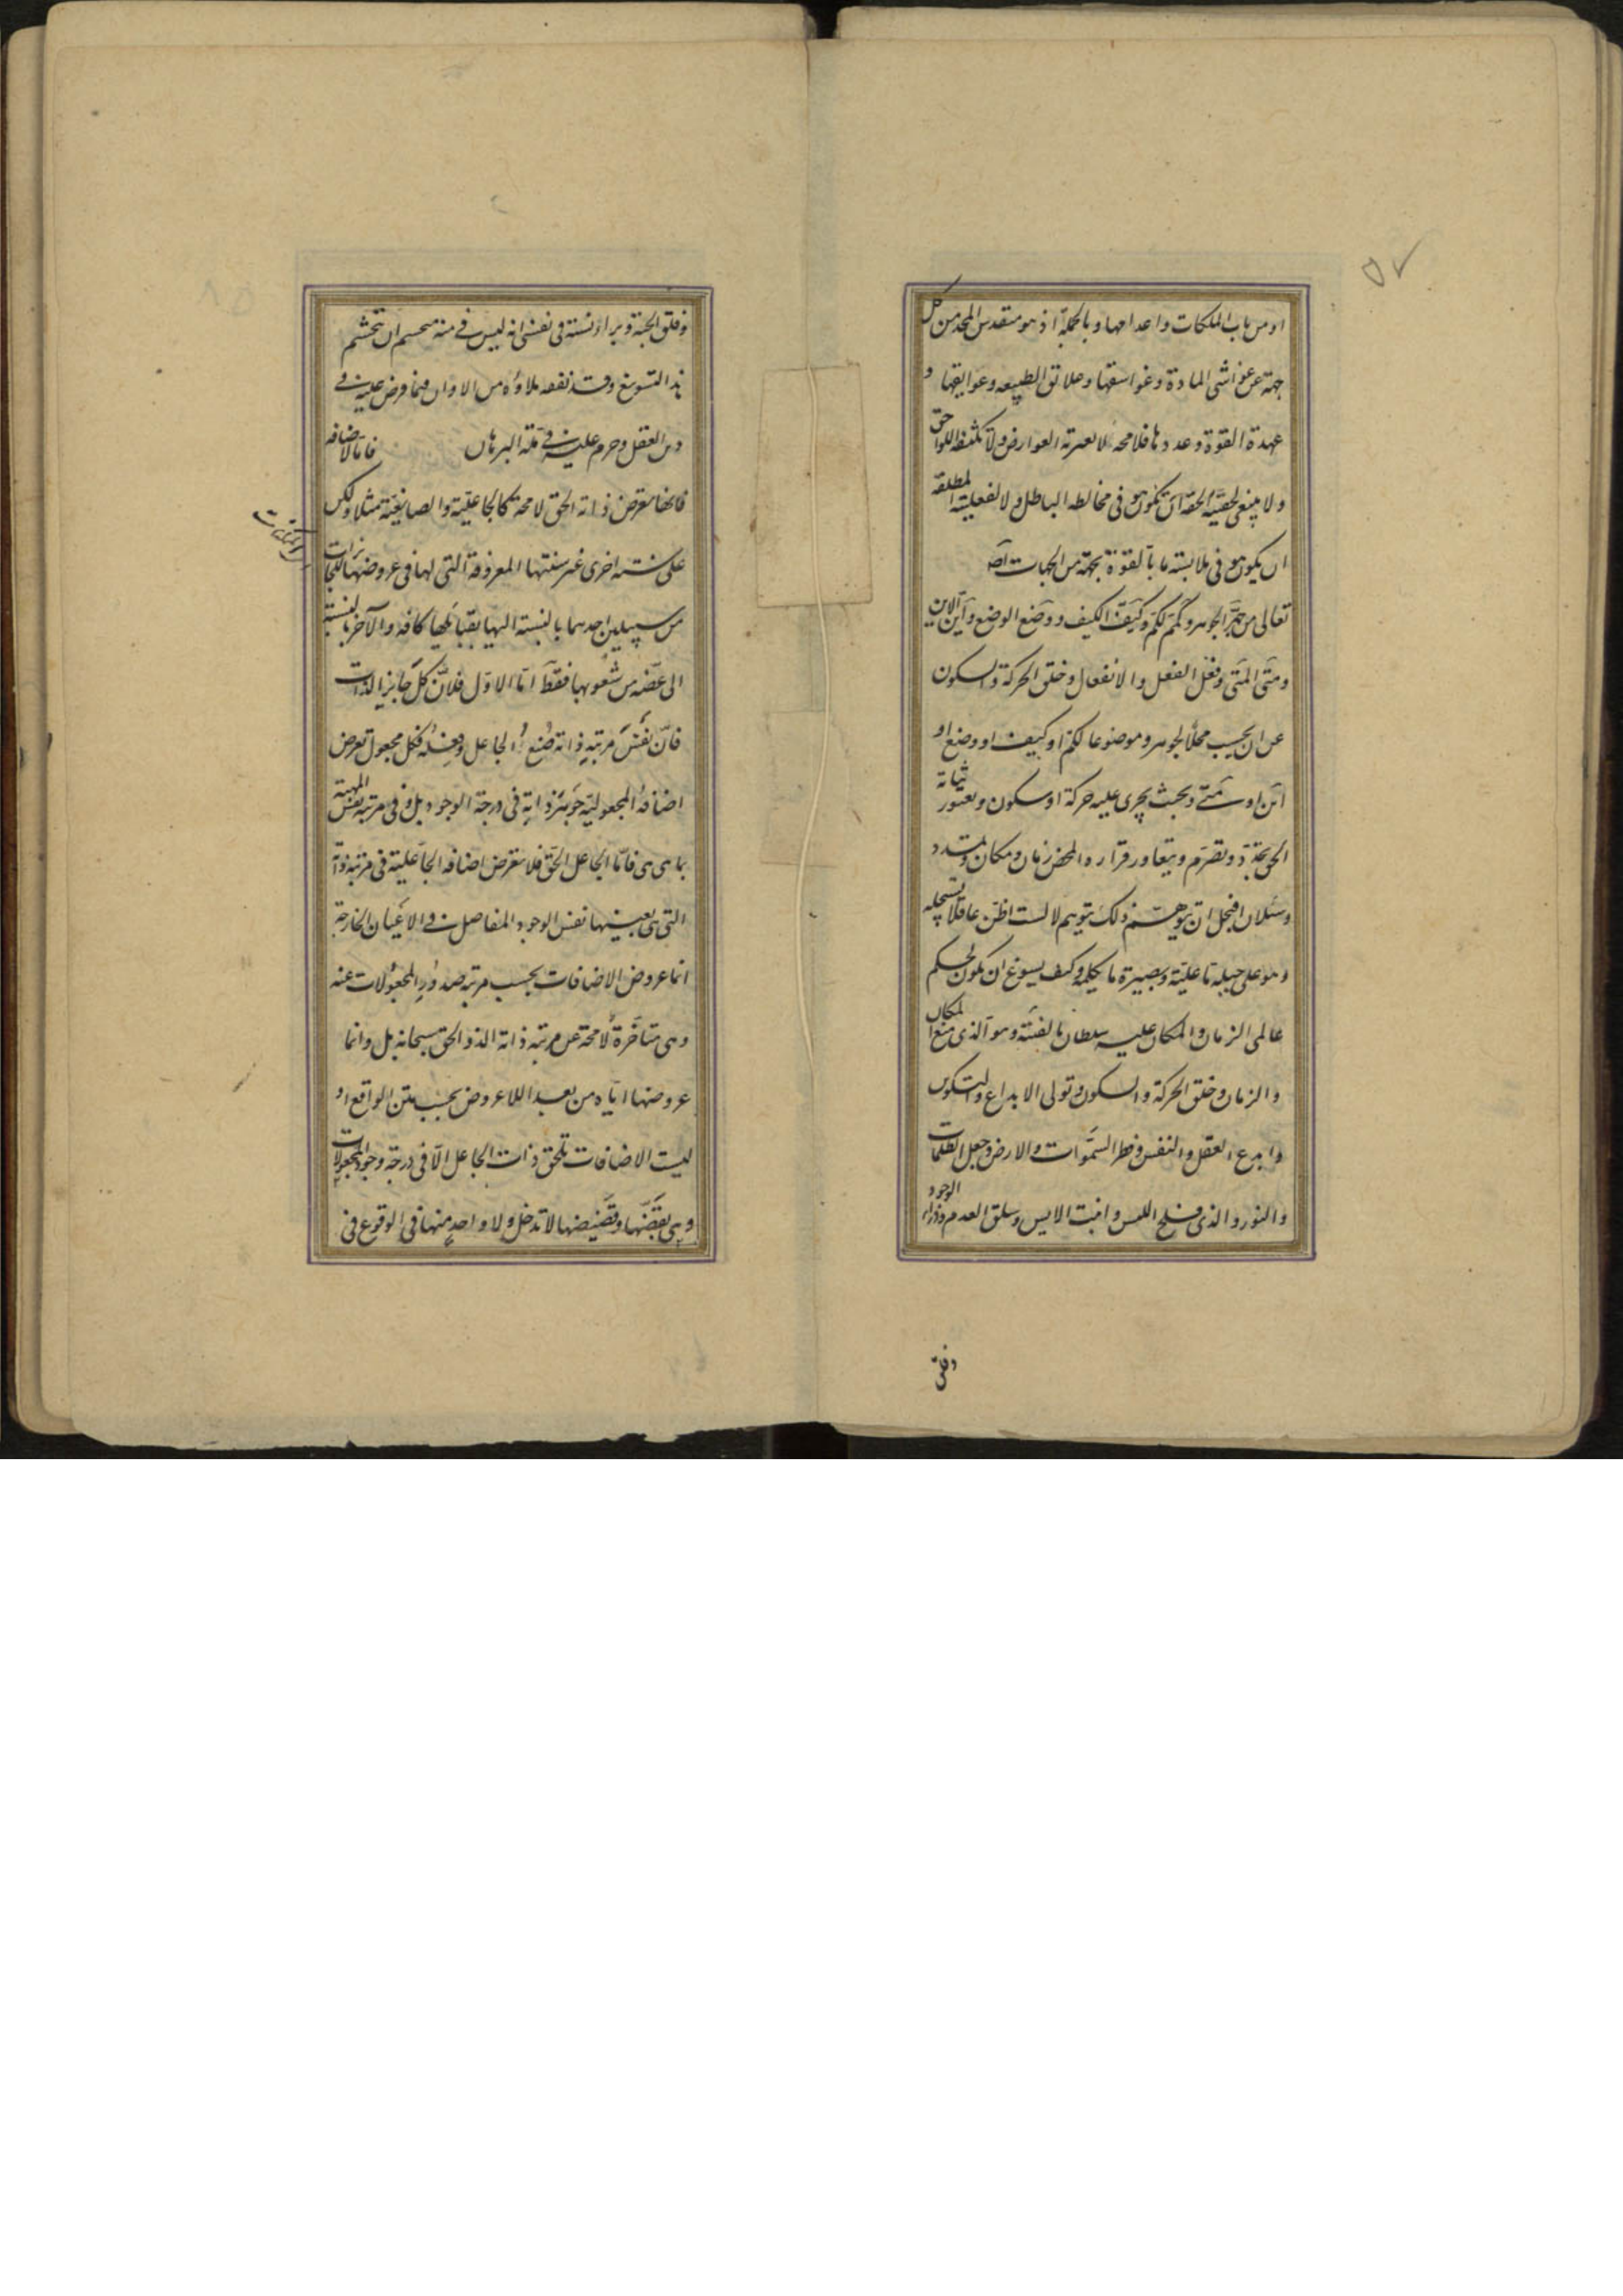 ٥٧
او من باب الملكات واعدامها وبالجملة اذ هو متقدس المجد من كل
جهة عن غواشى المادة وغواسقها وعلائق الطبيعه وعوايقها و
عهدة القوة وعددها فلا محة لا تعتريه العوارض ولا تكتنفه اللواحق
ولا ينبغى لحقيته الحقه ان تكون هو فى مخالطه الباطل ولا لفعليته المطلقه
ان يكون هو فى ملابسته ما بالقوة بجهة من الجهات
تعالى من جوهر الجوهر وكمم الكم وكيف الكيف ووضع الوضع واين الاين
ومتى المتى وفعل الفعل والانفعال وخلق الحركة والسكون
عن ان يحسب محلا لجوهر وموضوعا لكم او كيف او وضع او
اين او متى وبحيث يجرى عليه حركة او سكون ويعتور
تجدد وتصرم ويتعاور قراره المحض زمان ومكان
وسيلان افيخل ان يتوهم ذلك متوهم لا لست اظن عاقلا
وهو على جبلة ما عقلية وبصيرة ما وكيف يسوغ ان يكون لحكم
عالمى الزمان والمكان عليه سلطان بالفيئة وهو الذى صنع المكان
والزمان وخلق الحركة والسكون وتولى الابداع والتكوين
وابدع العقل والنفس وفطر السموات والارض وجعل الظلمات
والنور والذى سلخ الليس واثبت الايس وسلق العدم وذراء الوجود
وفلق
وفلق الحبة وبراء النسمة فى نفسى انه ليس فى منة متجشم ان يتجشم
هذا التسويغ وقد نفعه ملاؤه من الاوان فيما فرض عليه فى
دين العقل وحرم عليه فى ملة البرهان فاما الاضافه
فانها تعرض ذاته الحق لا محة كالجاعلية والصانعية مثلا ولكن
على سنة اخرى غير سنتها المعروفة التى لها فى عروضها للجائزات
من سبيلين احدهما بالنسبة اليها بقبائلها كافة والآخر بالنسبة
الى عضة من شعوبها فقط اما الاول فلان كل جايز الذات
فان نفس مرتبة ذاته صنع الجاعل وفعله فكل مجعول تعرض
اضافة المجعولية جوهر ذاته فى درجة الوجود بل وفى مرتبة نفس المهية
بما هى هى فاما الجاعل الحق فلا تعرض اضافه الجاعلية فى مرتبة ذاته
التى هى بعينها نفس الوجود المتاصل فى الاعيان الخارجة
انما عروض الاضافات بحسب مرتبة صدور المجعولات عنه
وهى متاخرة لا محة عن مرتبة ذاته الحق سبحانه بل وانما
عروضها اياه من بعد اللاعروض بحسب متن الواقع او
ليست الاضافات تلحق ذات الجاعل الا فى درجة وجود المجعولات
وهى بقضها وقضيضها لا تدخل ولا واحد منها فى الوقوع فى